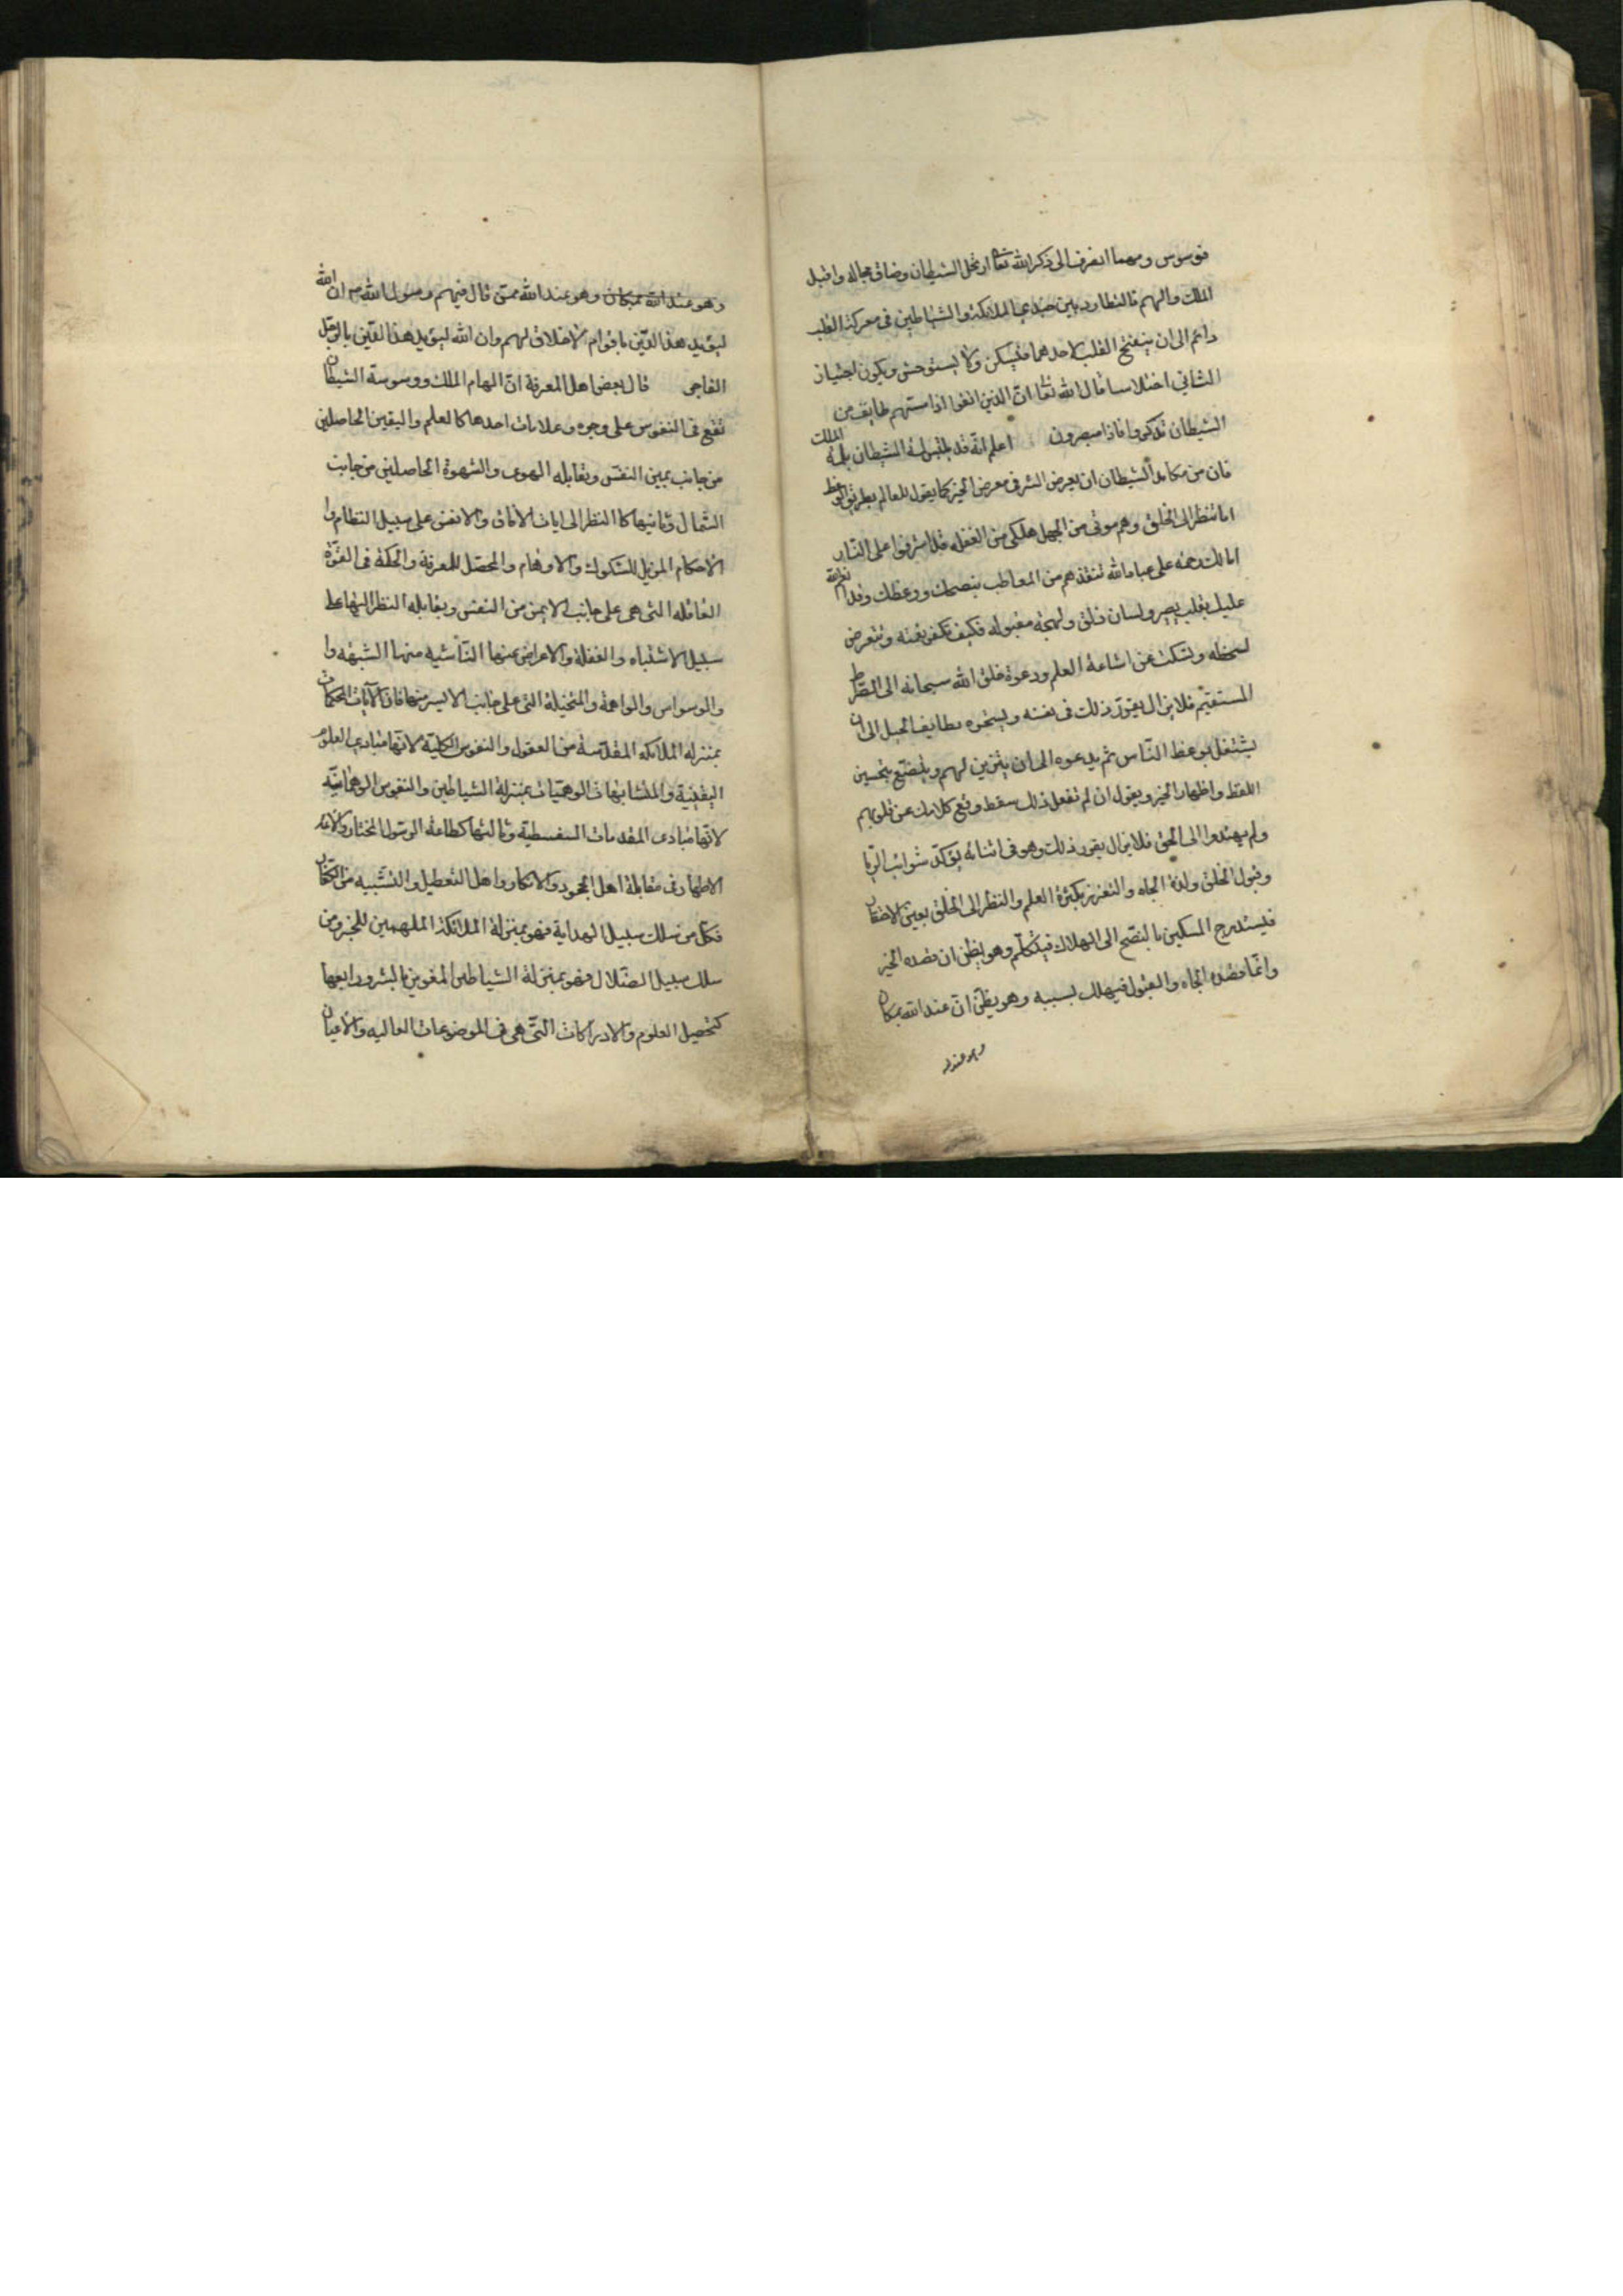 فوسوس ومهما انصرف الى ذكر الله تعا ارتحل الشيطان وضاق مجاله واقبل
الملك والهم فالتطارد بين جندي الملائكة والشياطين فى معركة القلب
دائم الى ان ينفتح القلب لاحدهما فيسكن ولا يستوحش ويكون اجتياز
الثاني اختلاسا قال الله تعا ان الذين اتقوا اذا مسهم طايف من
الشيطان تذكروا فاذا مبصرون اعلم انه قد يلتبس لمة الشيطان بلمة الملك
فان من مكايد الشيطان ان يعرض الشر فى معرض الخير كما يقول للعالم بطريق الوعظ
اما تنظر الى الخلق وهم موتى من الجهل هلكى من الغفلة قد اشرفوا على النار
امالك رحمة على عباد الله تنقذهم من المعاطب بنصحك ووعظك وقد انعم الله
عليك بقلب بصير ولسان ذلق ولهجة مقبوله فكيف تكفر نعمته وتتعرض
لسخطه وتسكت عن اشاعة العلم ودعوة خلق الله سبحانه الى الصراط
المستقيم فلا يزال يقرر ذلك فى نفسه ويستجره بطايف الحيل الى ان
يشتغل بوعظ الناس ثم يدعوه الى ان يتزين لهم ويتصنع بتحسين
اللفظ واظهار الخير ويقول ان لم تفعل ذلك سقط وقع كلامك عن قلوبهم
ولم يهتدوا الى الحق فلا يزال يقرر ذلك وهو فى اثنائه يؤكد شوائب الريا
وقبول الخلق ولذة الجاه والتعزز بكثرة العلم والنظر الى الخلق بعين الاحتقار
فيستدرج المسكين بالنصح الى الهلاك فيتكلم وهو يظن ان قصده الخير
وانما قصده الجاه والقبول فيهلك بسببه وهو يظن ان عند الله بمكان
وهو عند
وهو عند الله بمكان وهو عند الله ممن قال فيهم رسول الله ص ان الله
ليؤيد هذا الدين باقوام لا خلاق لهم وان الله ليؤيد هذا الدين بالرجل
الفاجر قال بعض اهل المعرفة ان الهام الملك ووسوسة الشيطان
تقع فى النفوس على وجوه وعلامات احدها كالعلم واليقين الحاصلين
من جانب يمين النفس ويقابله الهوى والشهوة الحاصلين من جانب
الشمال وثانيها كالنظر الى ايات الافاق والانفس على سبيل النظام وا
الاحكام المزيل للشكوك والاوهام والمحصل للمعرفة والحكمة فى القوة
العاقله التى هى على جانب الايمن من النفس ويقابله النظر اليها على
سبيل الاشتباه والغفلة والاعراض عنها الناشيه منها الشبهه وا
والوسواس والواهمة والمتخيلة التى على جانب الايسر منها فان الآيات المحكمات
بمنزله الملائكه المقدسة من العقول والنفوس الكلية لانها مبادي العلوم
اليقينية والمتشابهات الوهميات بمنزلة الشياطين والنفوس الوهمانية
لانها مبادى المقدمات السفسطية وثالثها كطاعة الرسول المختار والائمه
الاطهار فى مقابلة اهل الجحود والانكار واهل التعطيل والتشبيه من الكفار
فكل من سلك سبيل الهداية فهو بمنزلة الملائكة الملهمين للخير ومن
سلك سبيل الضلال فهو بمنزلة الشياطين المغوين بالشر ورابعها
كتحصيل العلوم والادراكات التى هى فى الموضوعات العاليه والاعيان